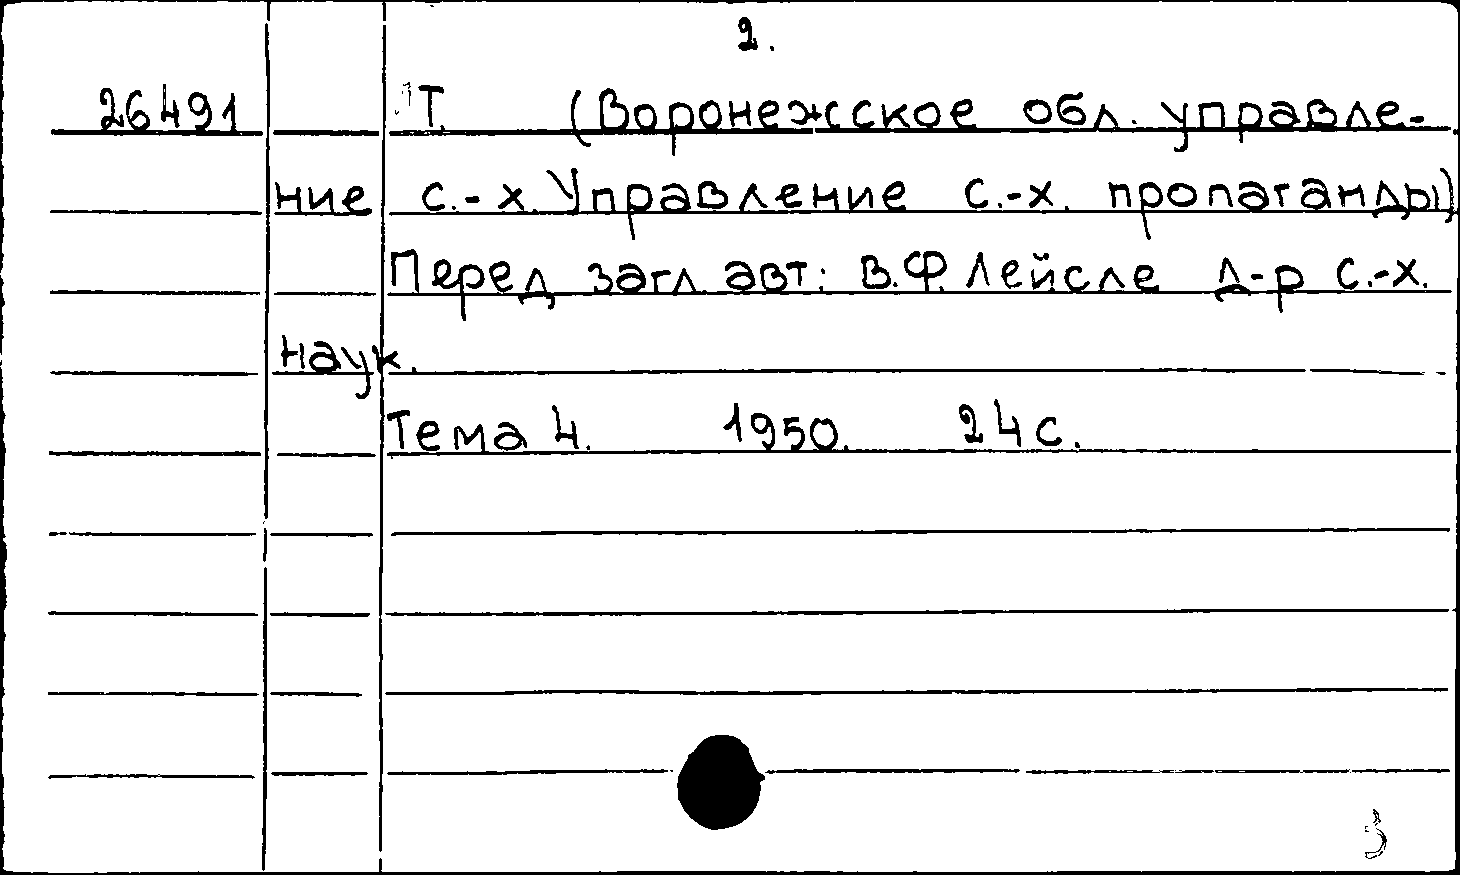 2.
26491 Т. (Воронежское обл. управле-
ние с.-х. Управление с.-х. пропаганды)
Перед загл. авт.: В.Ф. Лейсле д-р с.-х.
наук.
Тема 4. 1950. 24 с.
3